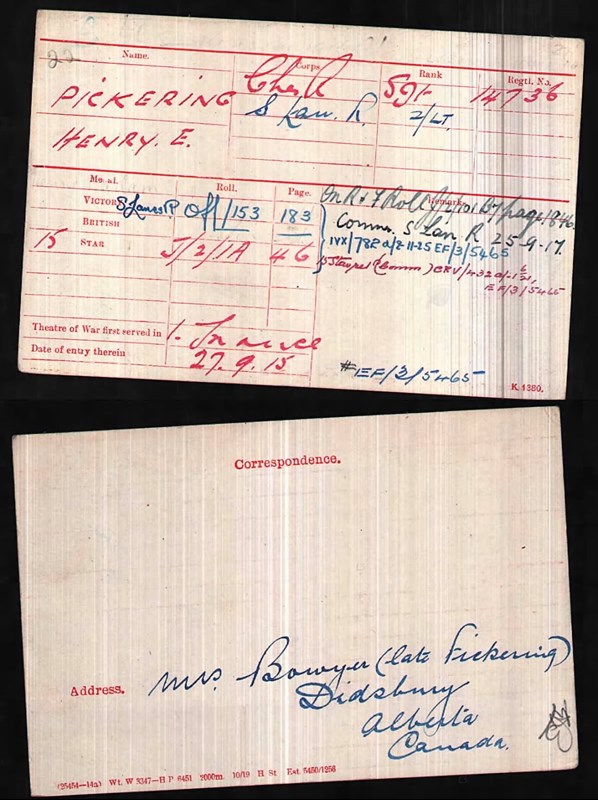 22
Name. Corps. Rank Regtl. No.
PICKERING Ches R Sgt 14736
S Lan. R. 2/LT.
HENRY. E.
Medal. Roll. Page. Remarks
On R & F Roll J/1/101 B7 page 1846.
VICTORY S Lancs R Off/153 183
BRITISH
Comm. S Lan. R 25-9-17.
15 STAR J/2/1A 46
IVX/782 a/2-11-25 EF/3/5465
(Comm) CRV/432
EF/3/5465
Theatre of War first served in 1. France
Date of entry therein 27.9.15
#EF/3/5465
K. 1380.
Correspondence.
Address. Mrs. Bowyer (late Pickering)
Didsbury
Alberta
Canada.
(25454—14a) Wt. W 3347—H P 6451 2000m. 10/19 H St Est. 5450/1256